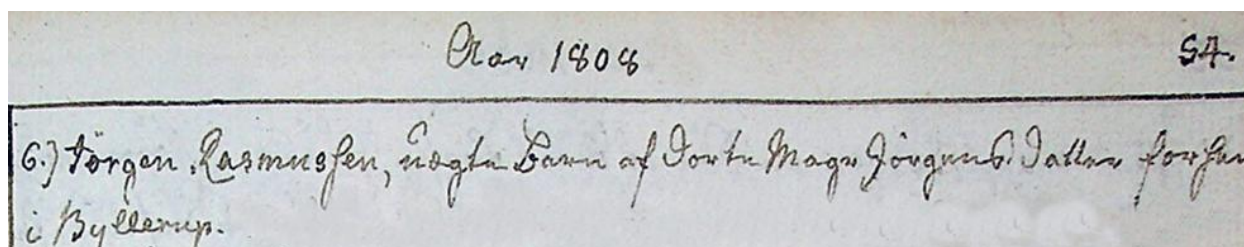 Aar 1808
54.
6.) Jørgen Rasmussen, uægte Barn af Dorte Magr Jørgens Datter forhen
i Byllerup.